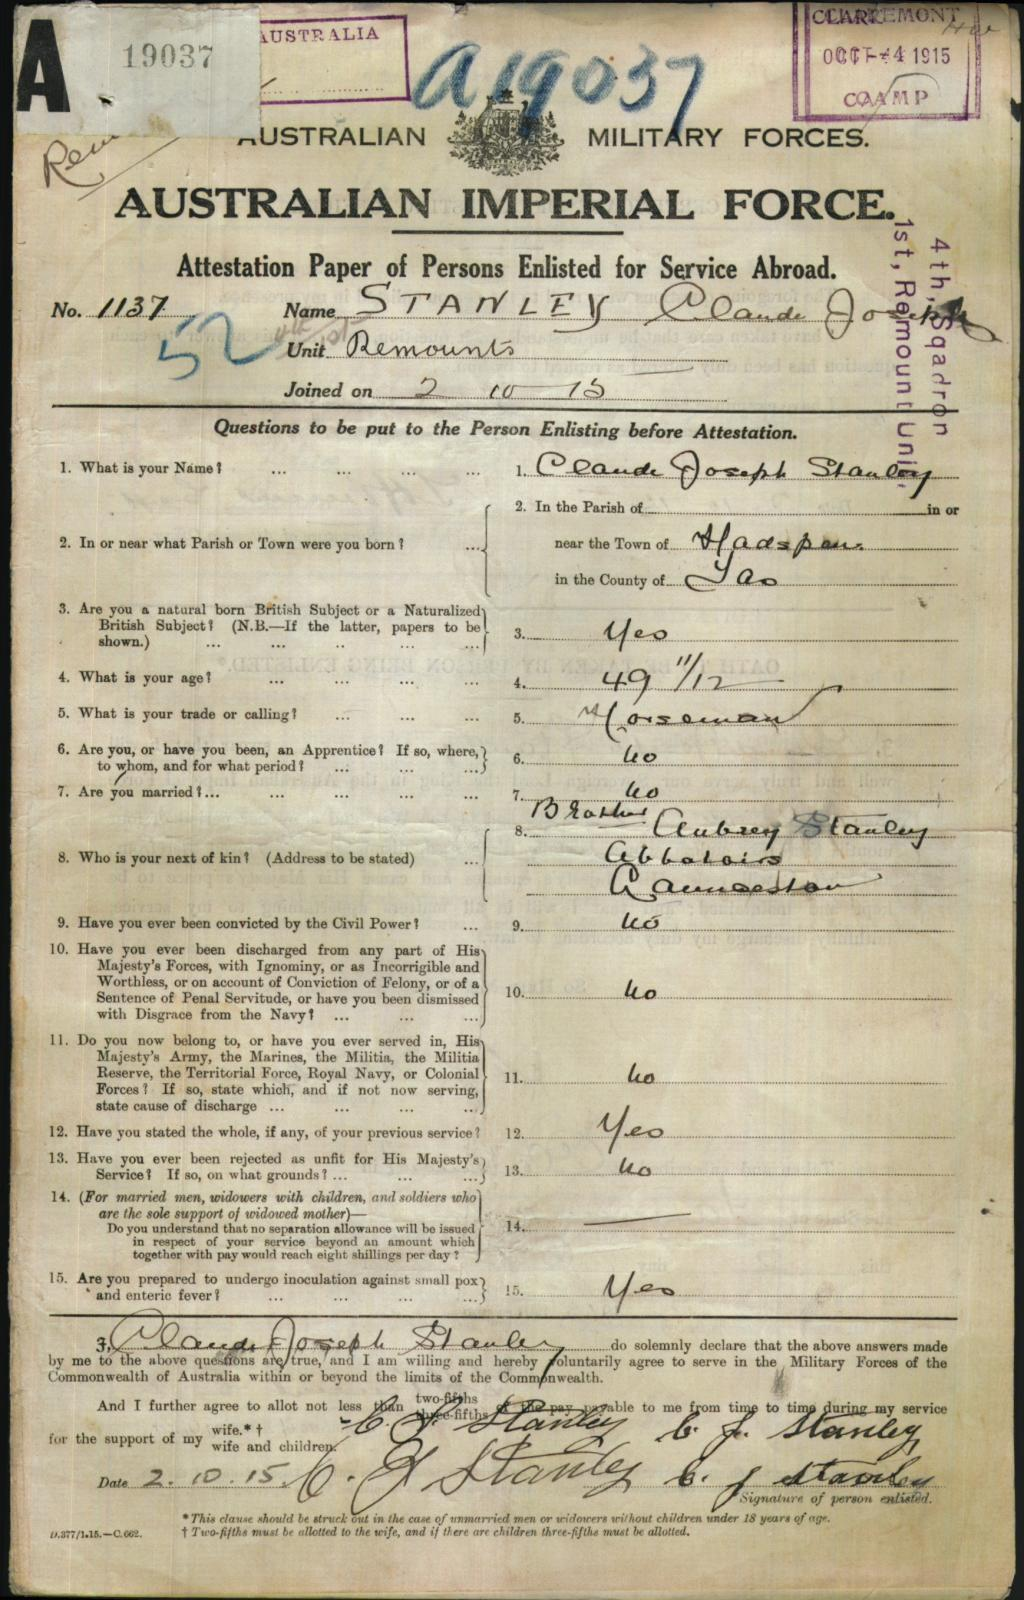 A 19037
AUSTRALIA
A19037
CLAREMONT
OCT -4 1915
CAMP
AUSTRALIAN MILITARY FORCES.
AUSTRALIAN IMPERIAL FORCE.
4th, Sqadron
1st, Remount Unit.
Attestation Paper of Persons Enlisted for Service Abroad.
No. 1137 Name STANLEY Claude Joseph
52
Unit Remounts
Joined on 2 10 15
Questions to be put to the Person Enlisting before Attestation.
1. What is your Name? ... ... ... ... 1. Claude Joseph Stanley
2. In or near what Parish or Town were you born? ... 2. In the Parish of in or
near the Town of Hadspen.
in the County of Tas
3. Are you a natural born British Subject or a Naturalized
British Subject? (N.B.—If the latter, papers to be
shown.) ... ... .. ... ... 3. Yes
4. What is your age? ... ... ... ... 4. 49 11/12
5. What is your trade or calling? ... ... ... 5. Horseman
6. Are you, or have you been, an Apprentice? If so, where,
to whom, and for what period? ... ... ... 6. no
7. Are you married?... ... ... ... ... 7. no
8. Who is your next of kin? (Address to be stated) ... 8. Brother Aubrey Stanley
Abbotoirs
Launceston
9. Have you ever been convicted by the Civil Power? ... 9. no
10. Have you ever been discharged from any part of His
Majesty's Forces, with Ignominy, or as Incorrigible and
Worthless, or on account of Conviction of Felony, or of a
Sentence of Penal Servitude, or have you been dismissed
with Disgrace from the Navy? ... ... ... 10. no
11. Do you now belong to, or have you ever served in, His
Majesty's Army, the Marines, the Militia, the Militia
Reserve, the Territorial Force, Royal Navy, or Colonial
Forces? If so, state which, and if not now serving,
state cause of discharge ... ... ... ... 11. no
12. Have you stated the whole, if any, of your previous service? 12. Yes
13. Have you ever been rejected as unfit for His Majesty's
Service? If so, on what grounds? ... ... ... 13. no
14. (For married men, widowers with children, and soldiers who
are the sole support of widowed mother)—
Do you understand that no separation allowance will be issued
in respect of your service beyond an amount which
together with pay would reach eight shillings per day? 14. —
15. Are you prepared to undergo inoculation against small pox
and enteric fever? ... ... ... ... 15. Yes
I, Claude Joseph Stanley do solemnly declare that the above answers made
by me to the above questions are true, and I am willing and hereby voluntarily agree to serve in the Military Forces of the
Commonwealth of Australia within or beyond the limits of the Commonwealth.
And I further agree to allot not less than two-fifths three-fifths of the pay payable to me from time to time during my service
for the support of my wife.*† wife and children. C. J. Stanley C. J. Stanley
Date 2. 10. 15 C. J Stanley C. J Stanley
Signature of person enlisted.
* This clause should be struck out in the case of unmarried men or widowers without children under 18 years of age.
D.377/1.15.—C.662. † Two-fifths must be allotted to the wife, and if there are children three-fifths must be allotted.